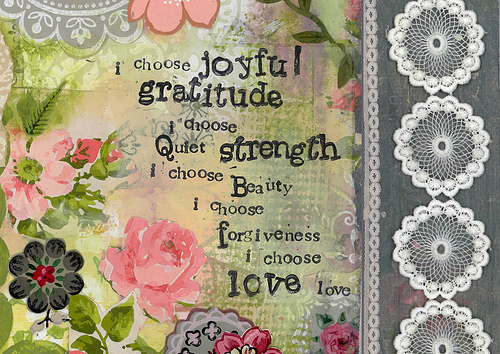 i choose joyful
gratitude
i choose
Quiet strength
i choose Beauty
i choose
forgiveness
i choose
love love